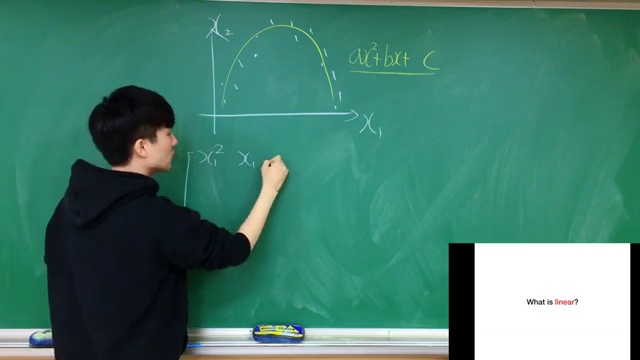 x₂
ax²+bx+ c
x₁
x₁² x₁
What is linear?